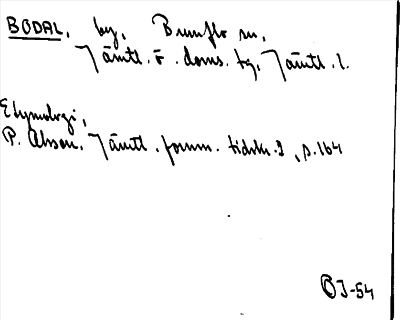 BODAL, by, Brunflo sn,
Jämtl. ö. doms. tg, Jämtl. l.
Etymologi,
P. Olsson, Jämtl. fornm. tidskr. 2, s. 164
BJ-54